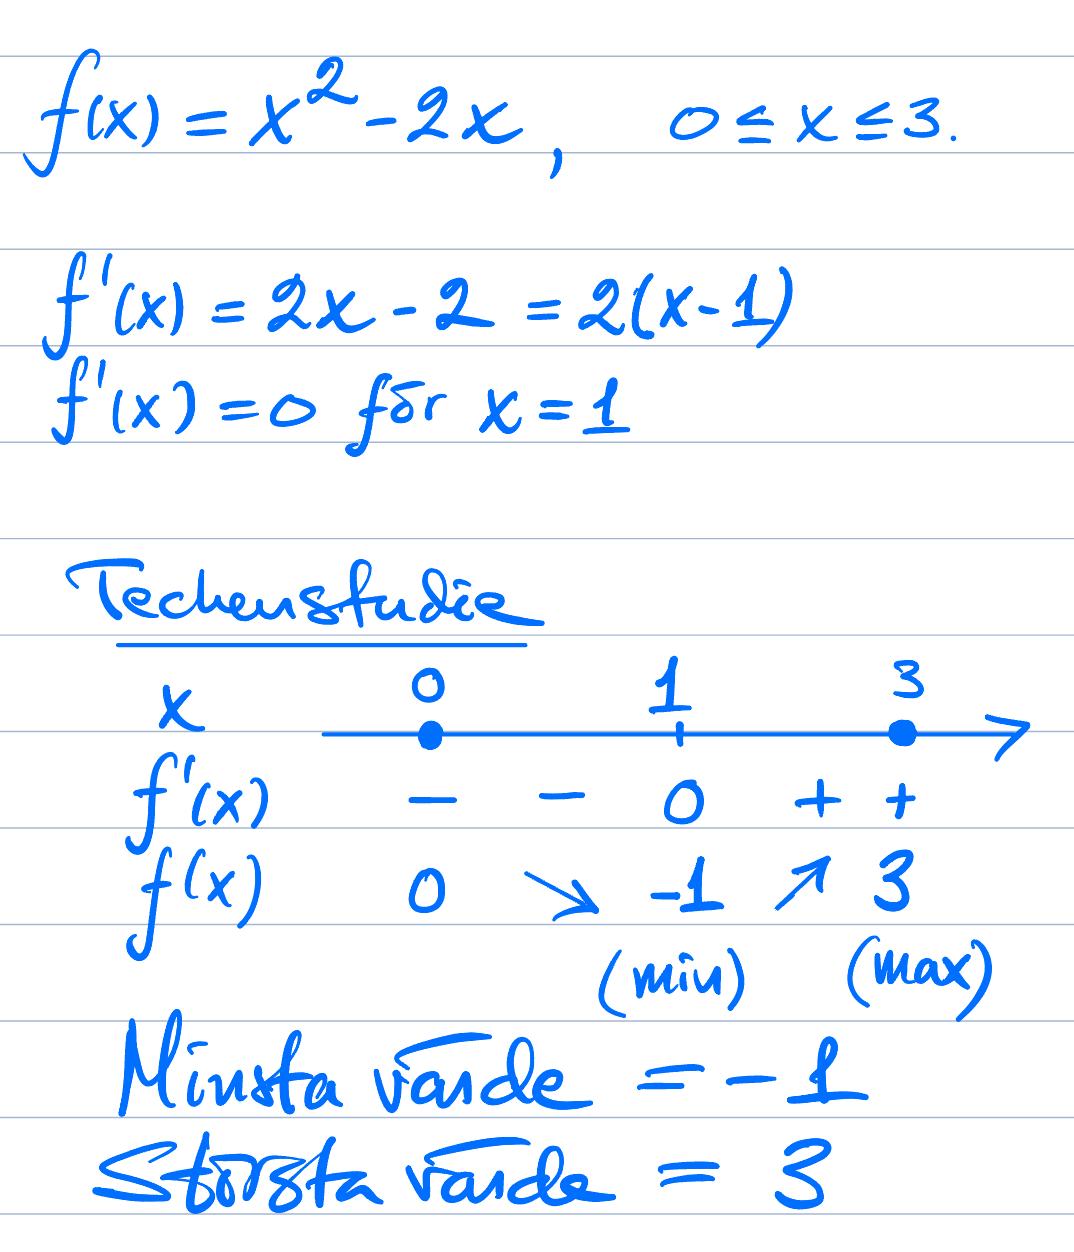 f(x) = x² - 2x, 0 ≤ x ≤ 3.
f'(x) = 2x - 2 = 2(x-1)
f'(x) = 0 för x = 1
Teckenstudie
x 0 1 3
f'(x) - - 0 + +
f(x) 0 ↘ -1 ↗ 3
(min) (max)
Minsta värde = -1
Största värde = 3